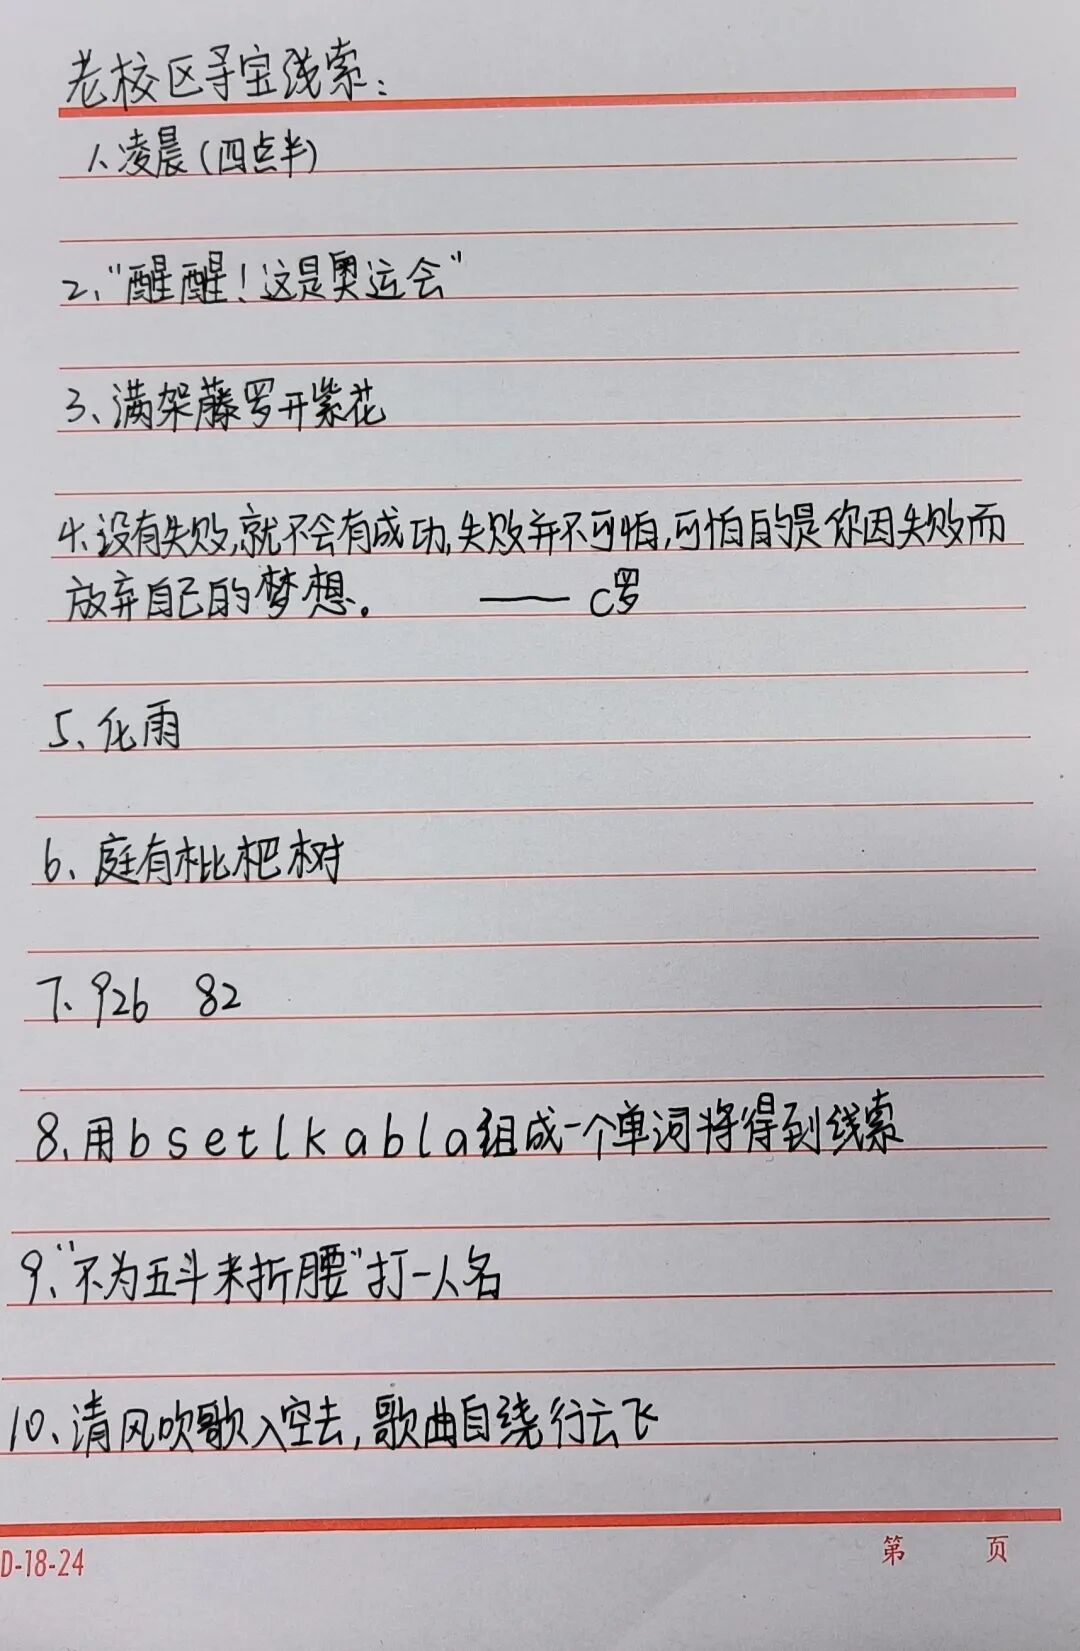 老校区寻宝线索：
1、凌晨（四点半）
2、“醒醒！这是奥运会”
3、满架藤罗开紫花
4、没有失败,就不会有成功,失败并不可怕,可怕的是你因失败而
放弃自己的梦想。 —— C罗
5、化雨
6、庭有枇杷树
7、926 82
8、用bsetlkabla组成一个单词将得到线索
9、“不为五斗米折腰”打一人名
10、清风吹歌入空去,歌曲自绕行云飞
D-18-24
第 页